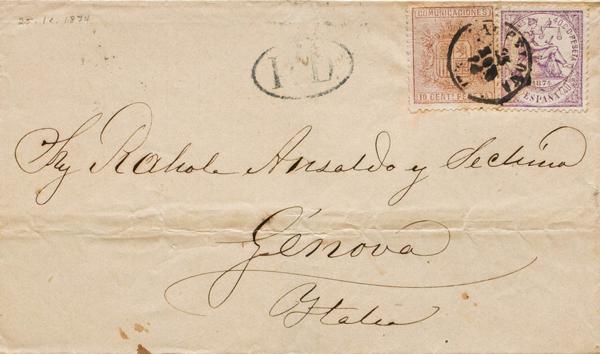 25. 1c. 1874
COMUNICACIONES
10 CENT. PESETA
40 C. D PESETA
1874
ESPAÑA
P.D.
Rahola Ansaldo y Sechino
Génova
Italia